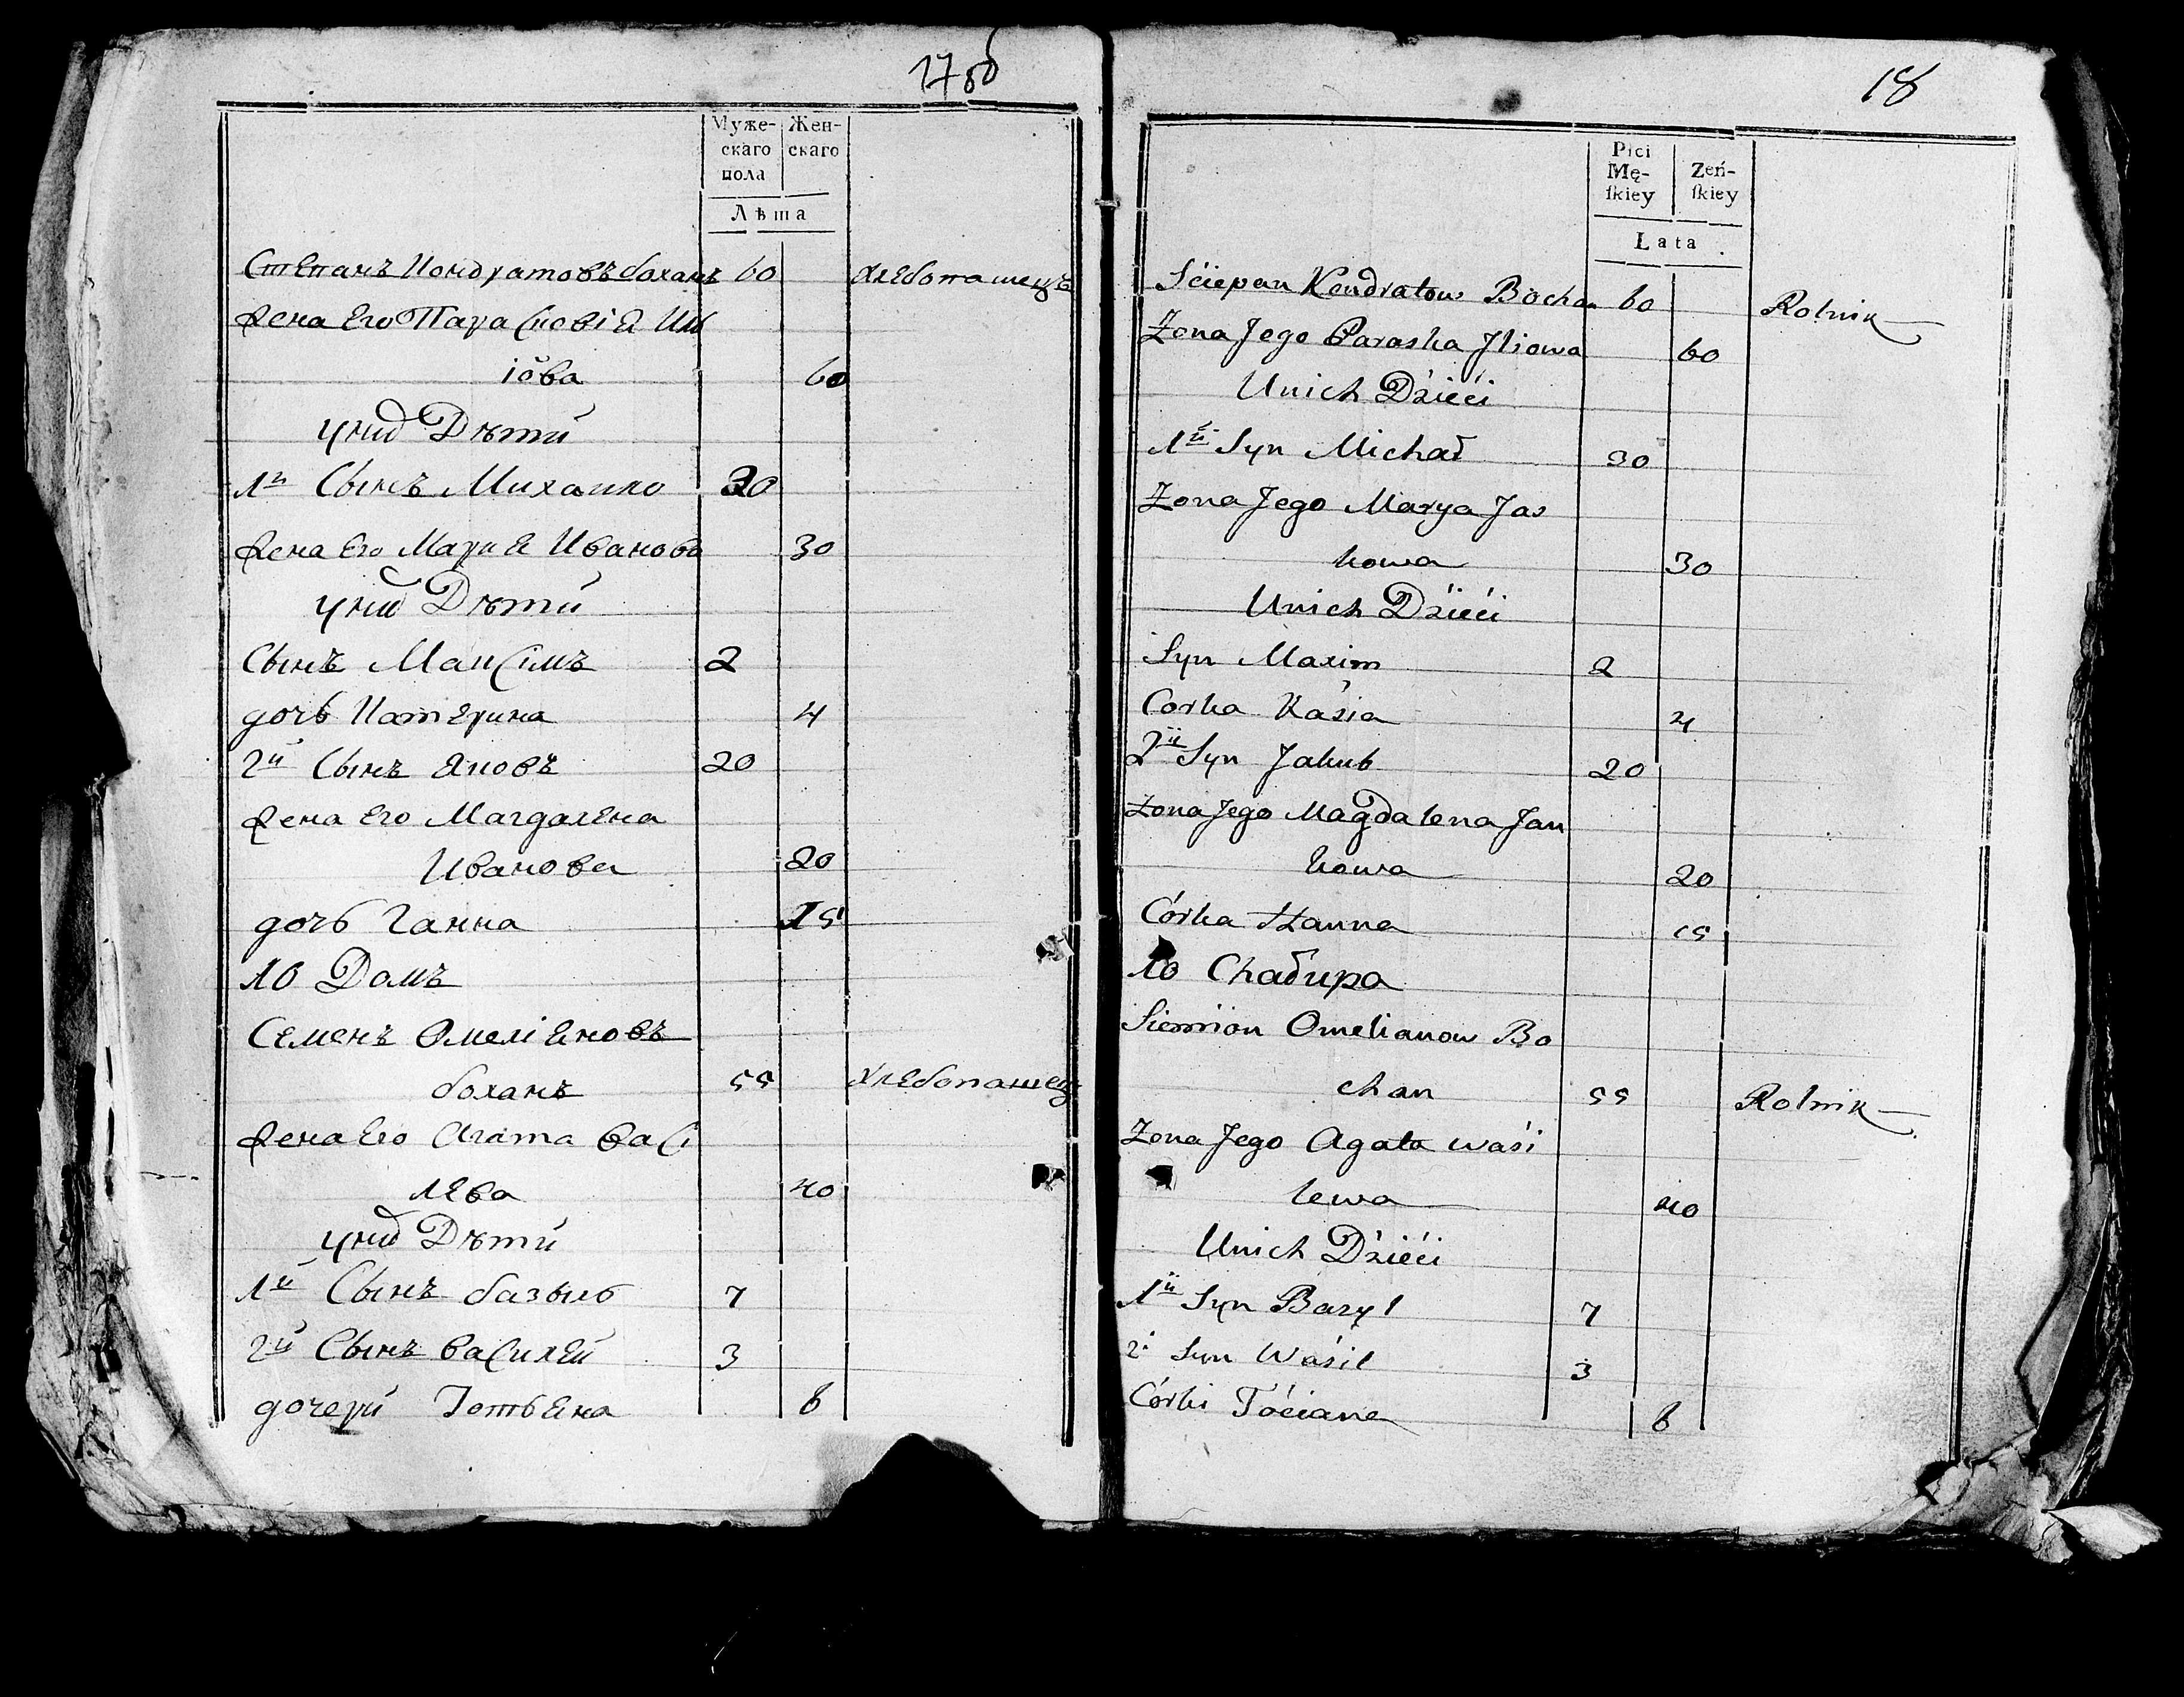 17об
Муже-
скаго
пола
Жен-
скаго
Лѣта
Степанъ Кондратовъ боханъ 60 хлебопашецъ
жена Его Парасковiя Ил
iова 60
у них Дѣти
1й Сынъ Михайло 30
жена Его Мария Иванова 30
у них Дѣти
Сынъ Максимъ 2
дочь Катерина 4
2й Сынъ Яковъ 20
жена Его Магдалена
Иванова 20
дочь Ганна 15
10 Домъ
Семенъ Омелiяновъ
боханъ 55 хлебопашец
жена Его Агата Васи
лева 40
у них Дѣти
1й Сынъ базыль 7
2й Сынъ Василей 3
дочери Тотьяна 6
18
Płci
Mę-
ſkiey
Zeń-
ſkiey
Lata
Sciepan Kondratow Bochan 60 Rolnik
Zona Jego Paraska Jliowa 60
Unich Dzieci
1й Syn Michał 30
Zona Jego Marya Jas
kowa 30
Unich Dzieci
Syn Maxim 2
Corka Kasia 4
2й Syn Jakub 20
Zona Jego Magdalena Jan
kowa 20
Córka Hanna 15
10 Chałupa
Siemion Omelianow Bo
chan 55 Rolnik
Zona Jego Agata Wasi
lewa 40
Unich Dzieci
1й Syn Bazyl 7
2й Syn Wasil 3
Córki Tociana 6